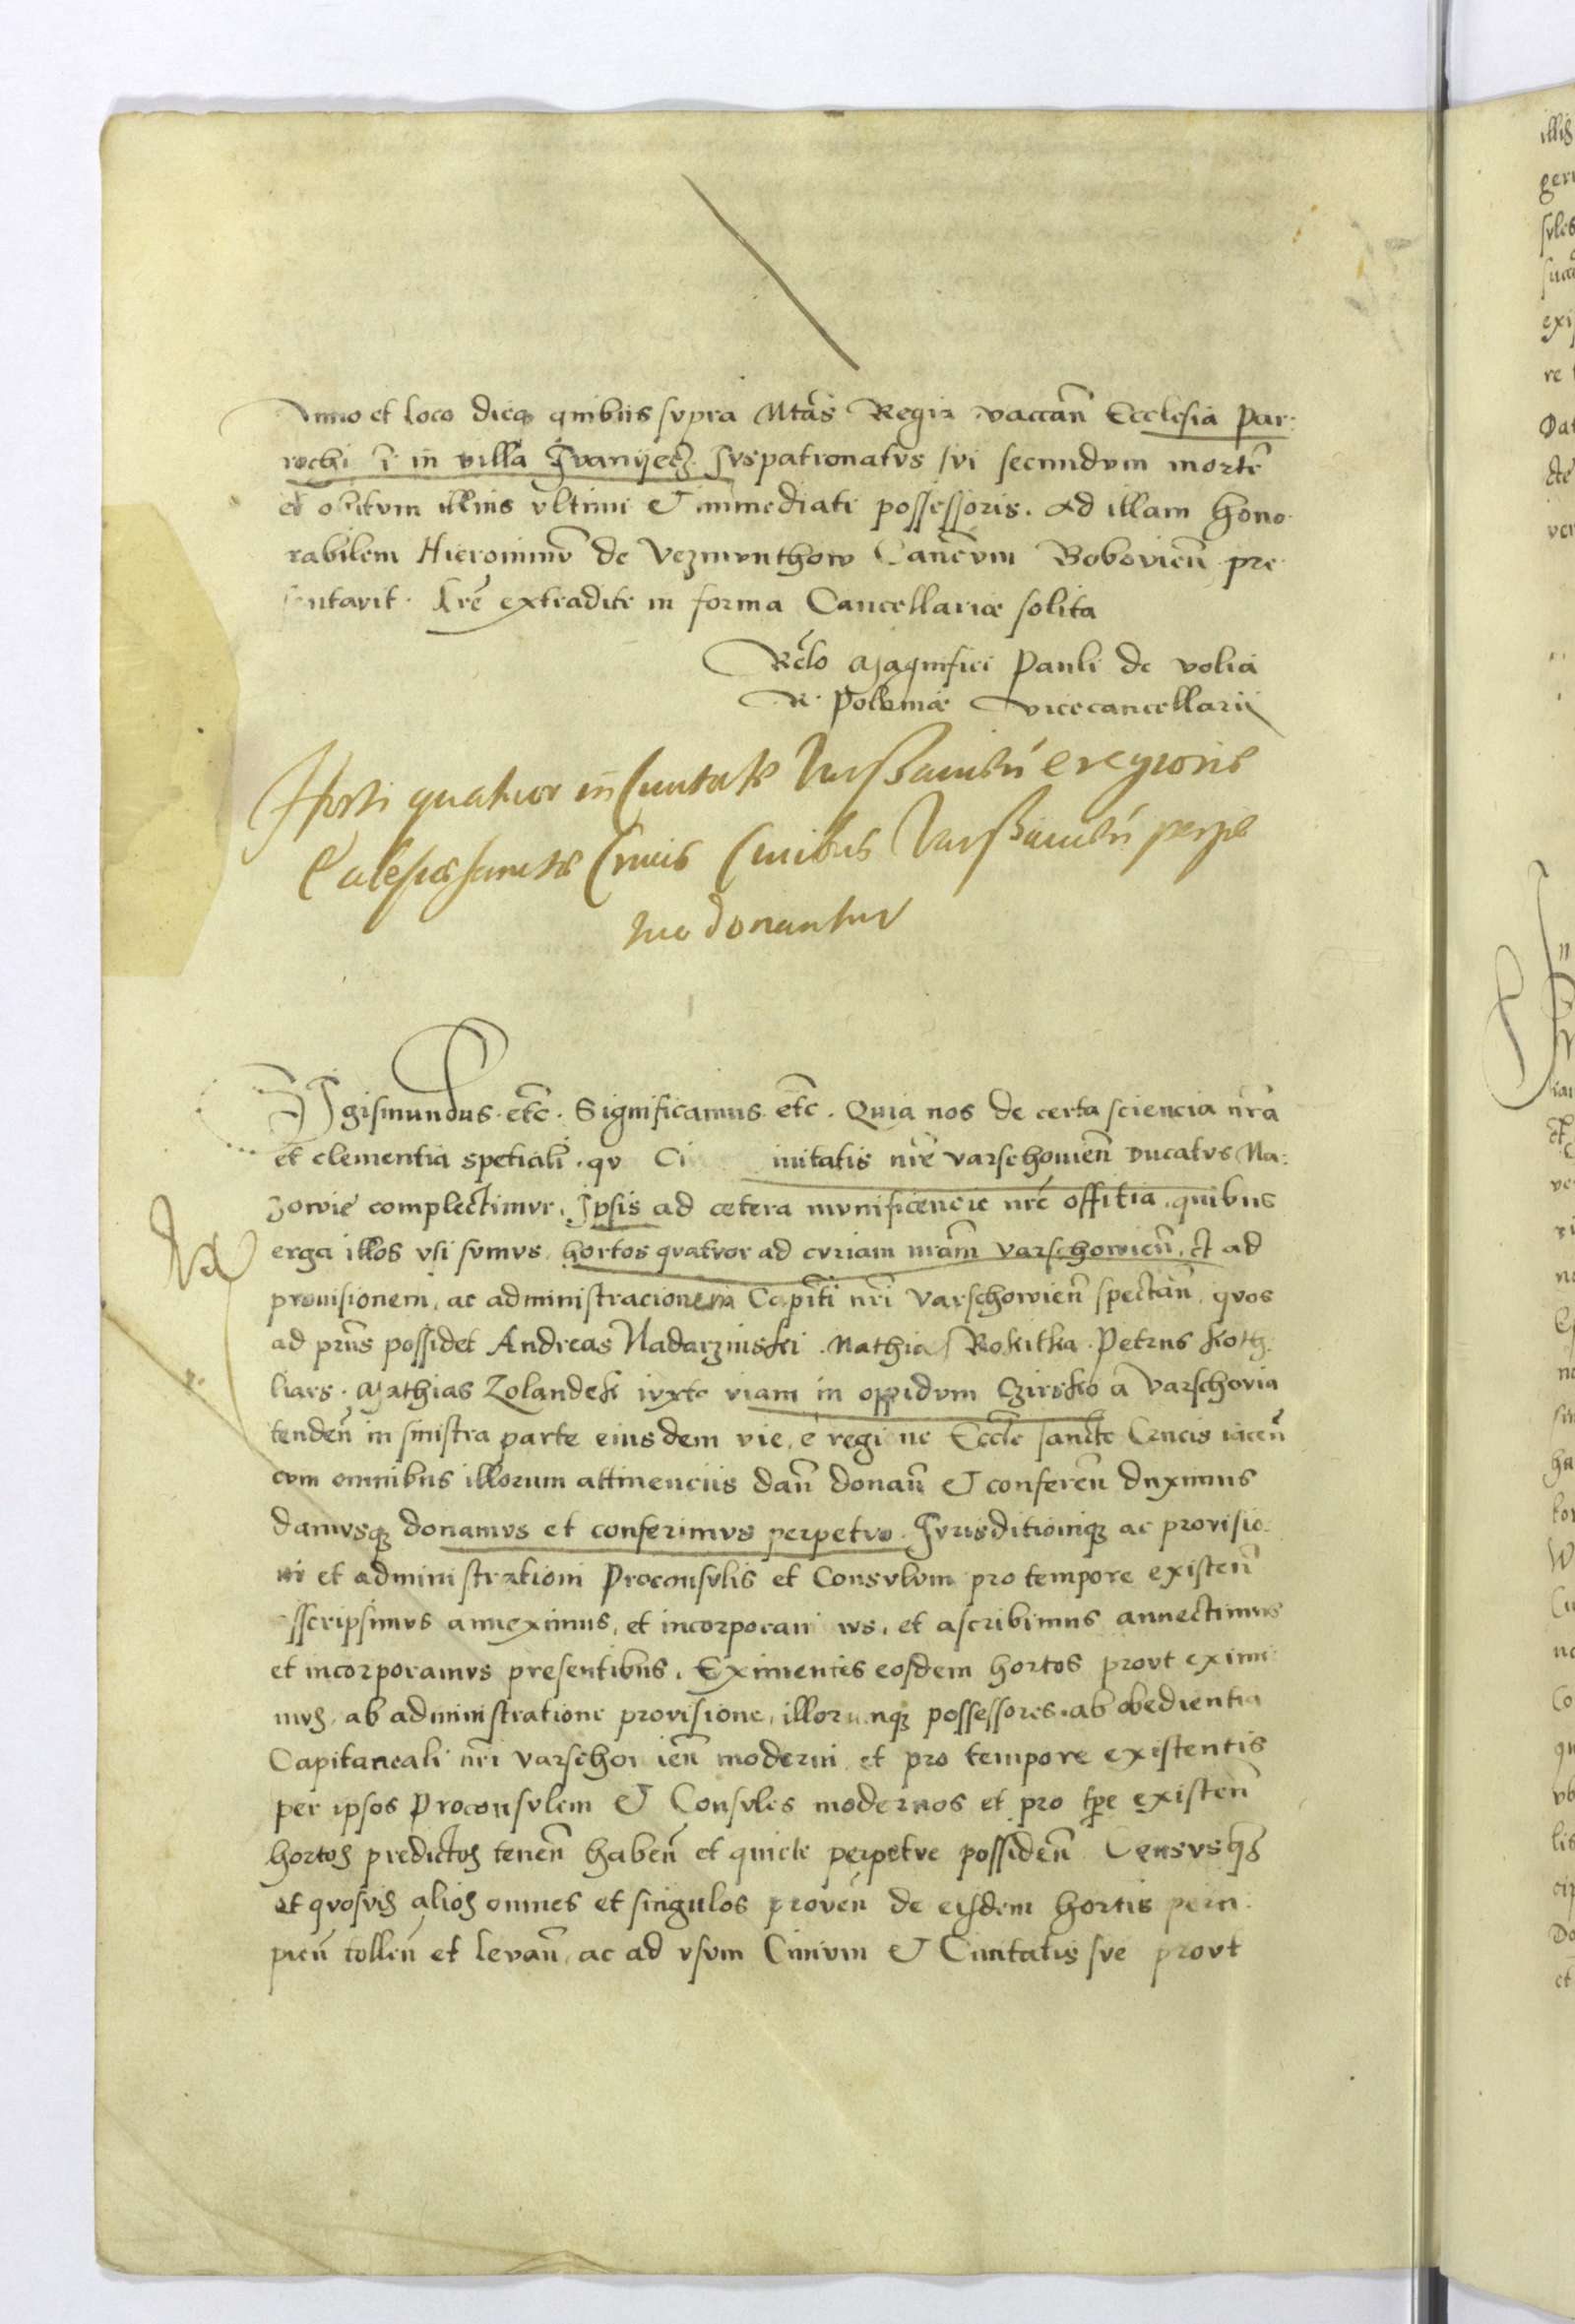 Anno et loco dieq quibus supra Mtas Regia vaccan̄ Ecclesia Par:
rochi in villa Ivanyecz Juspatronatvs svi secundvm mortē
et obitvm illius vltimi & immediati possessoris. Ad illam hono
rabilem Hieronimū de Vezmunthow Canēvm Bobovien̄ pre
sentavit. Lrē extradite in forma Cancellariæ solita
Rēlo Magnifici Pauli de volia
R. Poloniæ vicecancellarij
Horti quatuor in Ciuitate Varssauien̄ e regione
Ecclesiæ sanctæ Crucis Ciuibus Varssauien̄ perpe
tuo donantur
SIgismundus. etc̄. Significamus. etc̄. Quia nos de certa sciencia nrā
et clementia spetiali. qv Ci uitatis nrē varschouien̄ Ducatvs Ma:
zovie complectimvr. Ipsis ad cetera mvnificencie nrē offitia. quibus
erga illos vsi svmvs hortos qvatvor ad cvriam nrām Varschowien̄. et ad
prouisionem, ac administracionem Capiti nrī Varschowien̄ spectan̄, qvos
ad prn̄s possidet Andreas Nadarzinski. Mathias Rokitka. Petrus Koth
liars. Mathias Zolandek ivxta viam in oppidvm Czirsko a Varschovia
tenden̄ in sinistra parte eiusdem vie, e regione Eccle sancte Crucis iacen̄
cvm omnibus illorum attinenciis dan̄ donan̄ & conferen̄ duximus
damvsq donamvs et conferimvs perpetvo. Jvrisditioniq ac provisio
ni et administrationi Proconsvlis et Consvlvm pro tempore existen̄
asscripsimvs annexinus, et incorporavi vs, et ascribimus annectimvs
et incorporamvs presentibus. Eximentes eosdem hortos provt eximi
mvs, ab administratione provisione, illorunq possessores. ab obedientia
Capitaneali nrī varschovien̄ moderni et pro tempore existentis
per ipsos Proconsvlem & Consvles modernos et pro tp̄e existen̄
hortos predictos tenen̄ haben̄ et quiete perpetve possiden̄ Censvsq
et qvosvis alios omnes et singulos proven̄ de eisdem hortis perci
pien̄ tollen̄ et levan̄, ac ad vsvm Civivm & Ciuitatis sve provt